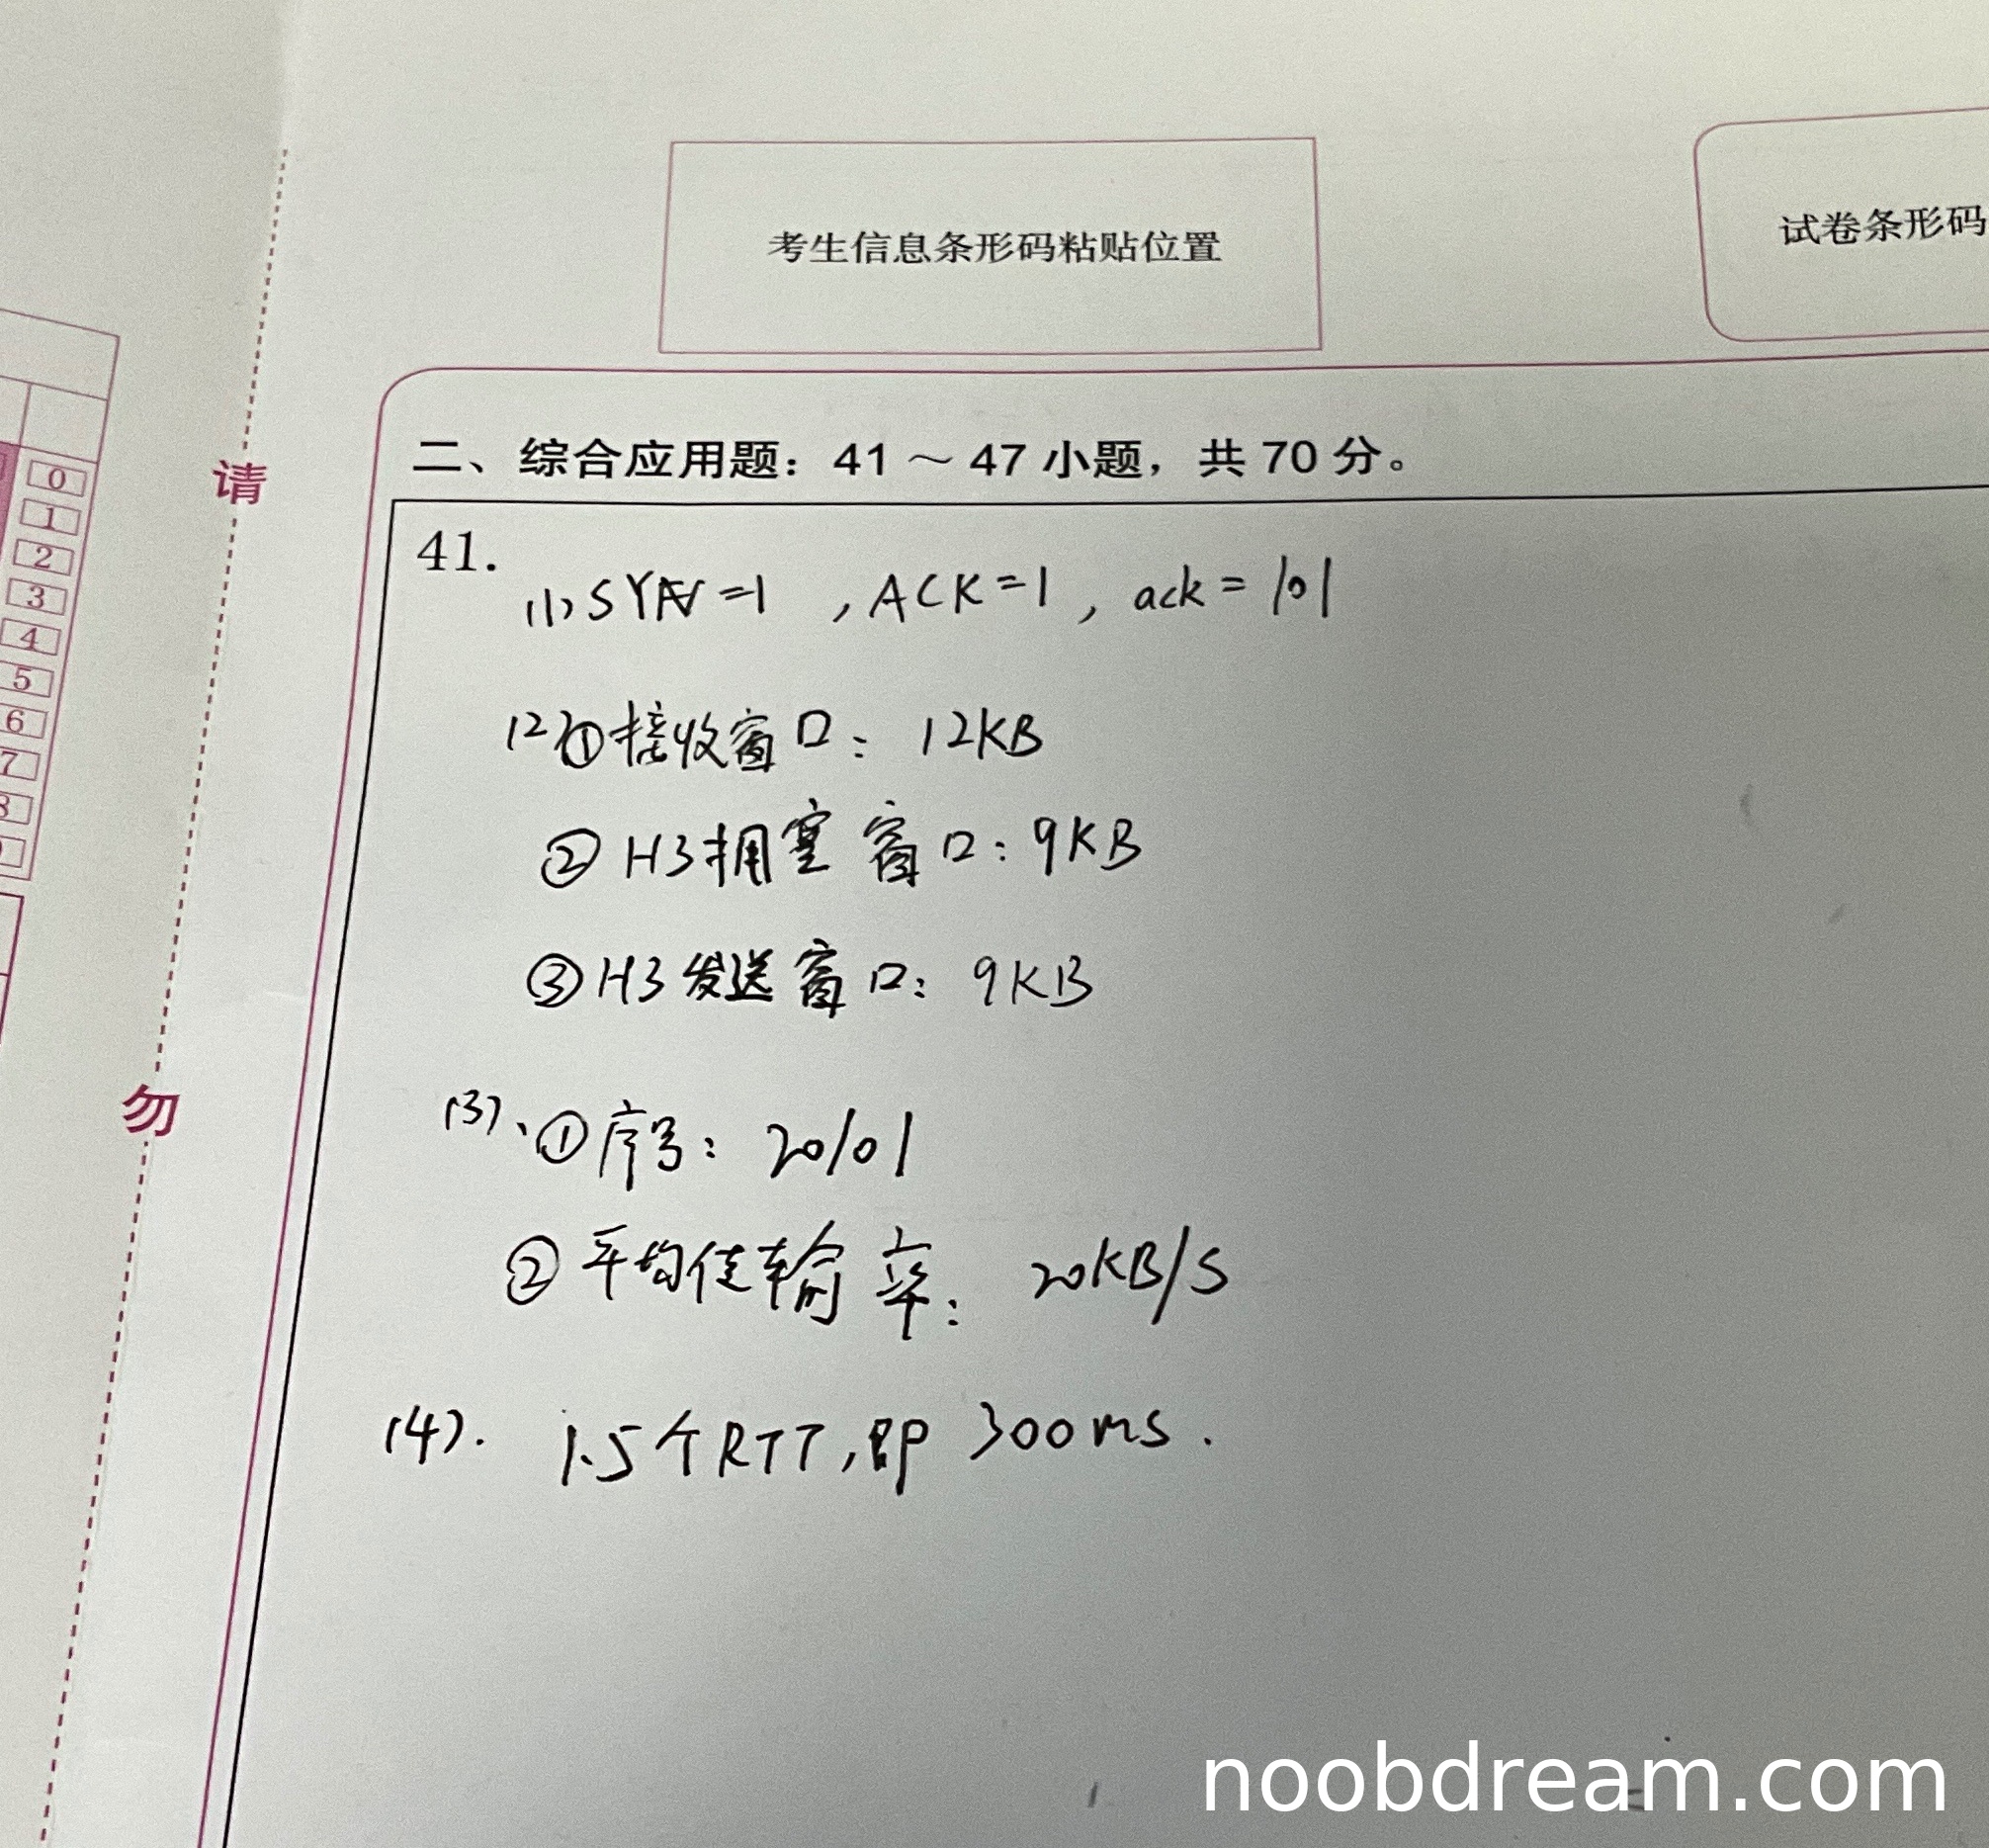 考生信息条形码粘贴位置
试卷条形码
0
1
2
3
4
5
6
7
8
请
勿
二、综合应用题：41 ～ 47 小题，共 70 分。
41.
(1) SYN=1 , ACK=1 , ack=101
(2) ①接收窗口： 12KB
② H3拥塞窗口：9KB
③ H3发送窗口：9KB
(3)、①序号：20101
② 平均传输率： 20KB/S
(4). 1.5个RTT,即 300ms.
noobdream.com